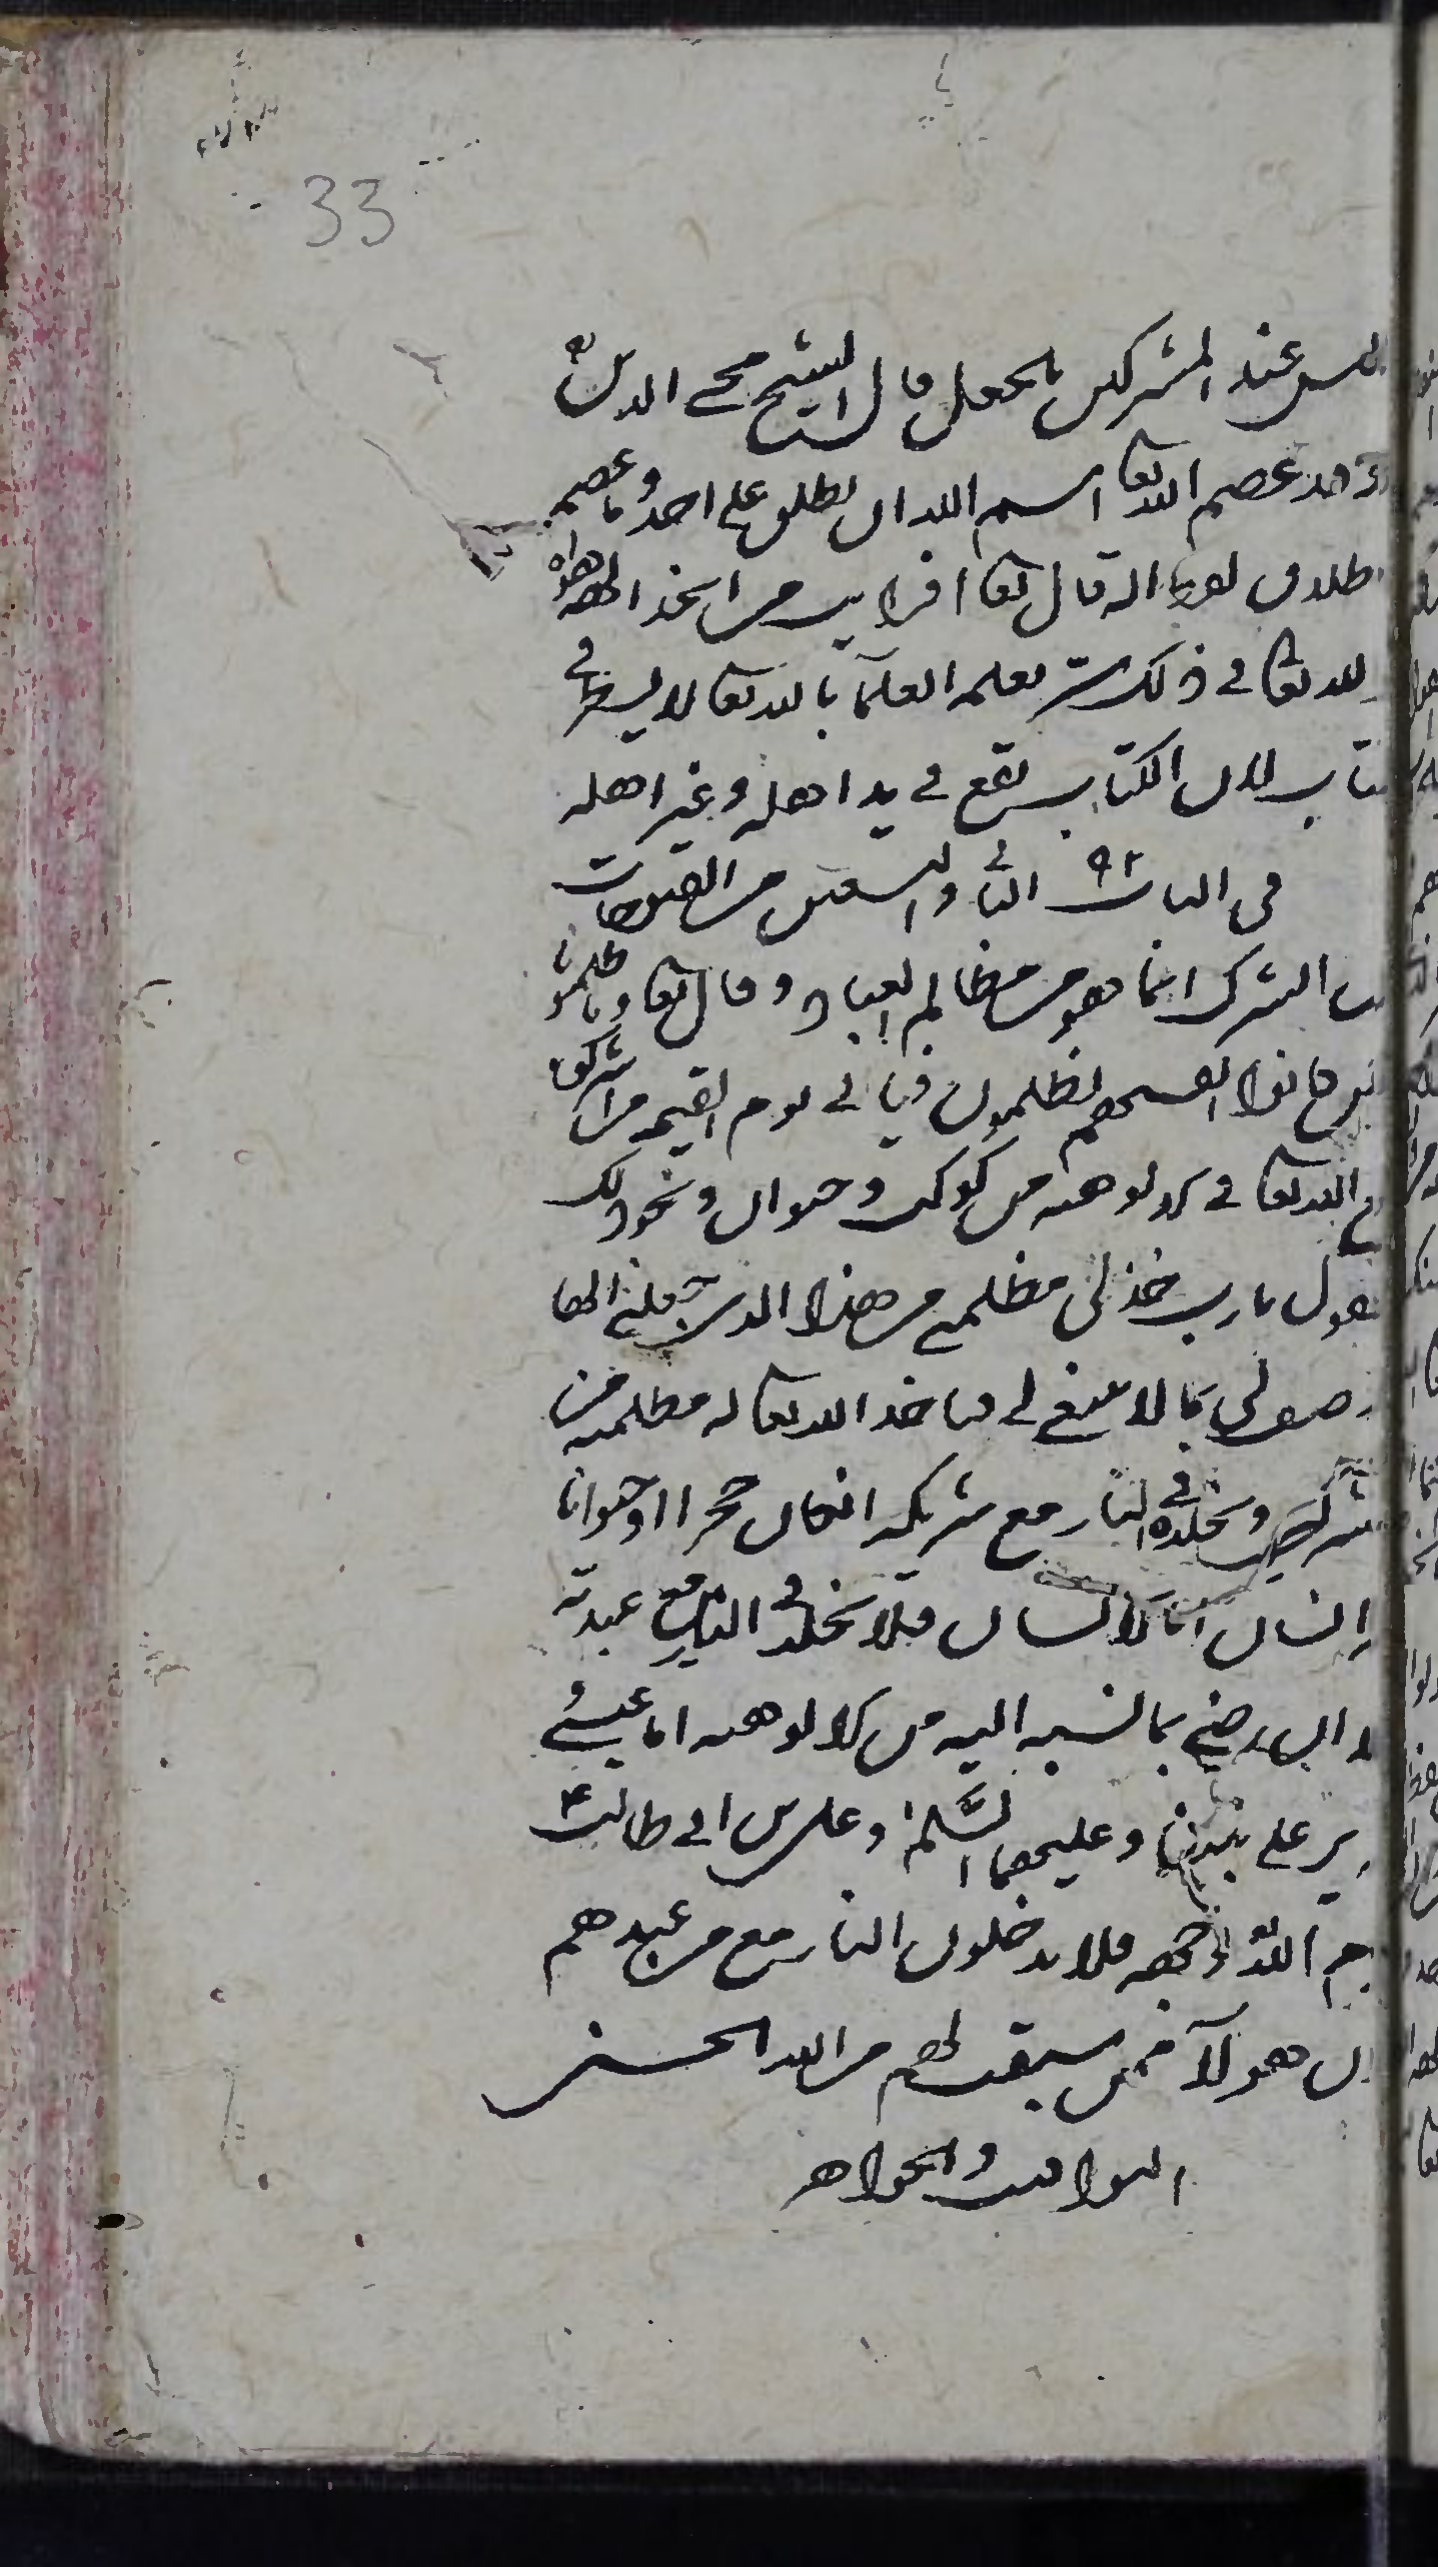 33
ليس عند المشركين بالجعل قال الشيخ محي الدين
وقد عصم الله تعا اسم الله ان يطلق على احد وما عصم
اطلاق لفظ اله قال تعا افرايت من اتخذ الهه هواه
لله تعا في ذلك سر يعلمه العلما بالله تعا لا يسطر في
كتاب لان الكتاب يقع في يد اهله وغير اهله
في الباب ٩٢ الثاني والتسعين من الفتوحات
الشرك انما هو من مظالم العباد وقال تعا وما ظلمونا
كانوا انفسهم يظلمون فياتي يوم القيمه من اشركوه
مع الله تعا في الالوهيه من كوكب وحيوان ونحو ذلك
فيقول يارب خذ لي مظلمتي من هذا الذي جعلني الها
ووصفني بما لا ينبغي لي فياخذ الله تعا له مظلمته من
المشرك ويخلده في النار مع شريكه ان كان حجرا او حيوانا
انسان اما الانسان فلا يخلد في النار مع عبدته
الا ان رضي بما نسبه اليه من الالوهيه اما عيسى
وعزير على نبينا وعليهما السلم وعلي بن ابي طالب
كرم الله وجهه فلا يدخلون النار مع من عبدهم
لان هولآ ممن سبقت لهم من الله الحسنى
اليواقيت والجواهر